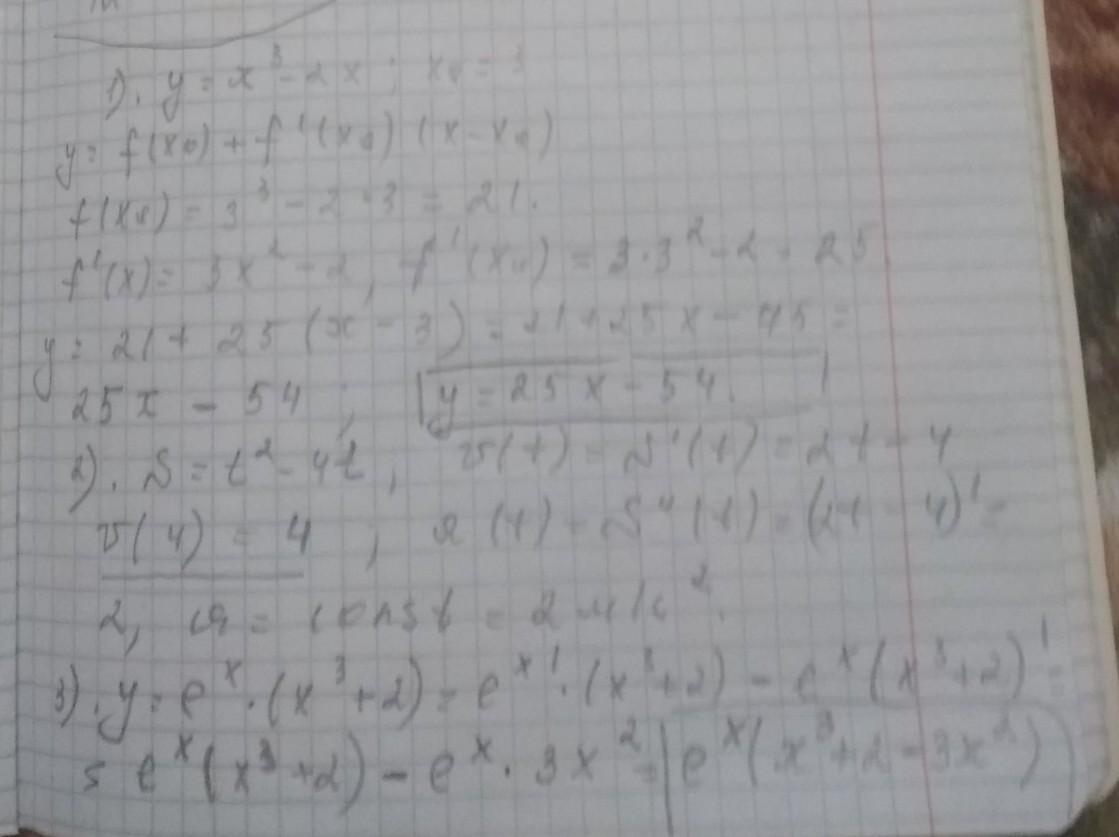 1). y = x³ - 2x ; x₀ = 3
y = f(x₀) + f'(x₀) (x - x₀)
f(x₀) = 3³ - 2·3 = 21.
f'(x) = 3x² - 2, f'(x₀) = 3·3² - 2 = 25
y = 21 + 25 (x - 3) = 21 + 25x - 75 =
25x - 54 ; y = 25x - 54.
2). S = t² - 4t, v(t) = S'(t) = 2t - 4
v(4) = 4 ; a(t) = S''(t) = (2t - 4)' =
2, a = const = 2 м/с².
3). y = eˣ · (x³ + 2) = eˣ' · (x³ + 2) - eˣ (x³ + 2)' =
= eˣ (x³ + 2) - eˣ · 3x² = eˣ (x³ + 2 - 3x²)